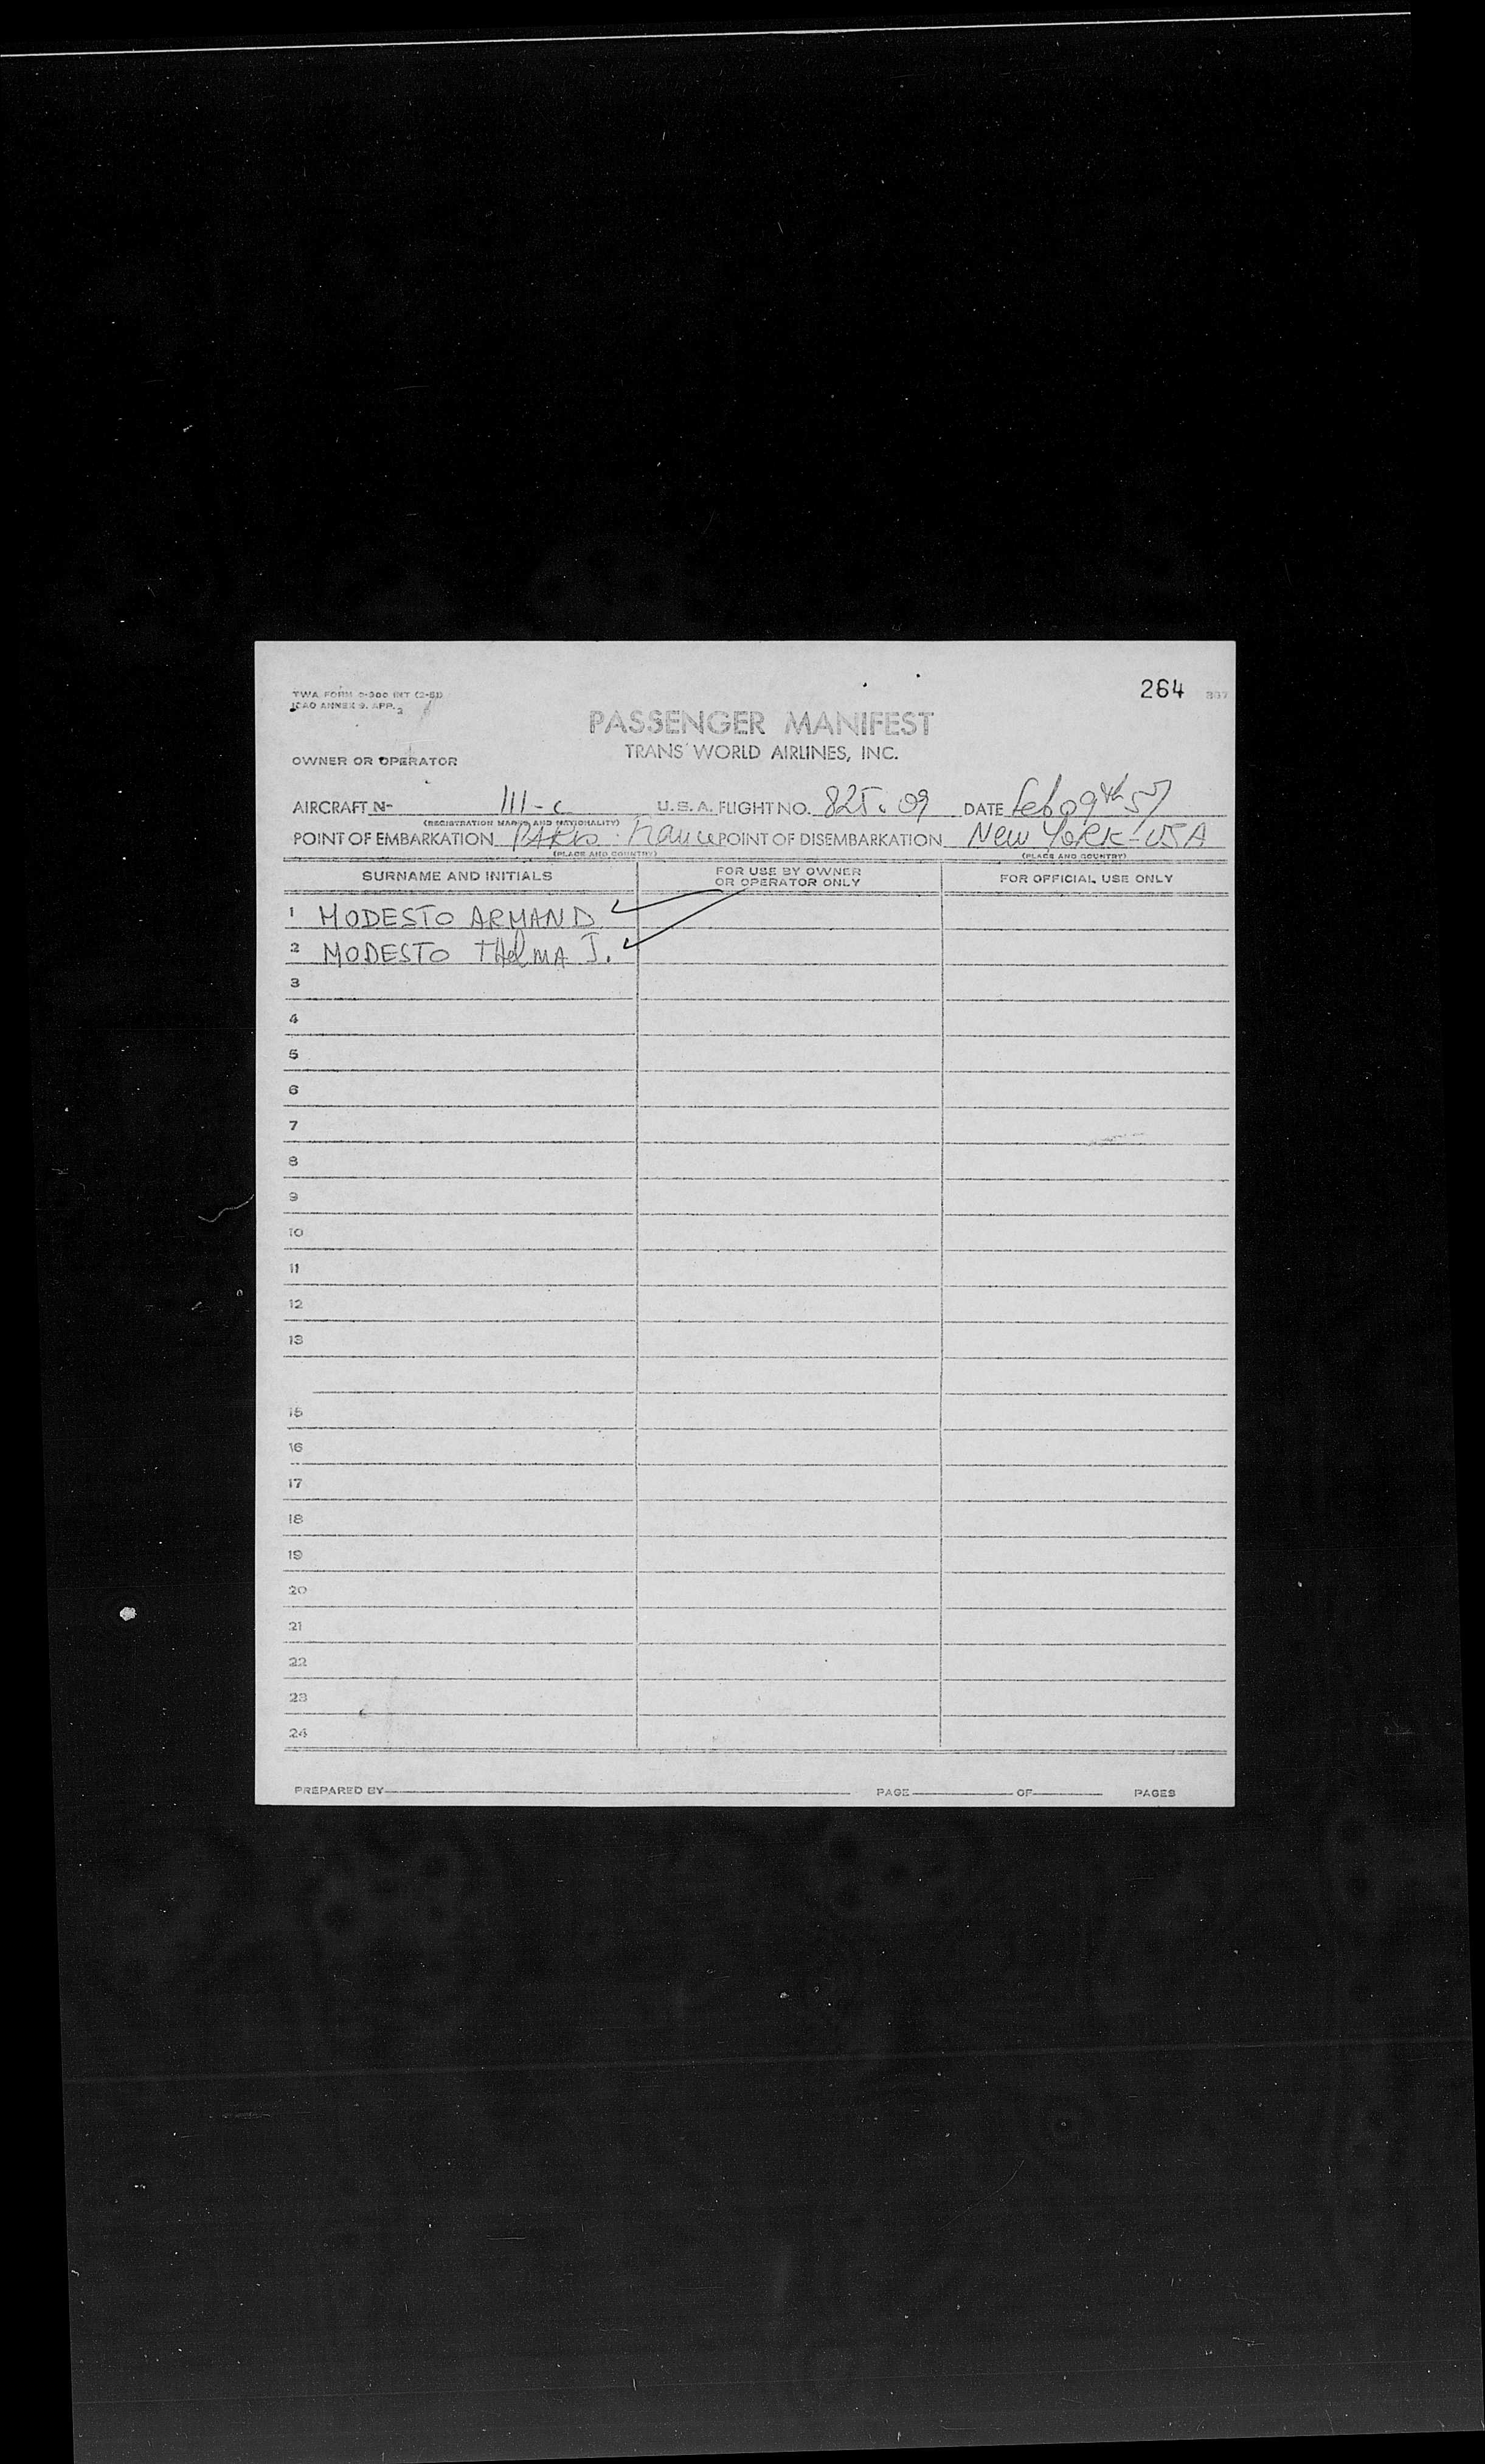 TWA FORM
ICAO ANNEX 9. APP. 2
264
PASSENGER MANIFEST
TRANS WORLD AIRLINES, INC.
OWNER OR OPERATOR
AIRCRAFT N- 111-C U.S.A. FLIGHT NO. DATE Feb 09th 57
(REGISTRATION MARKS AND NATIONALITY)
POINT OF EMBARKATION PARIS France POINT OF DISEMBARKATION New YORK-USA
(PLACE AND COUNTRY) (PLACE AND COUNTRY)
SURNAME AND INITIALS FOR USE BY OWNER OR OPERATOR ONLY FOR OFFICIAL USE ONLY
1 MODESTO ARMAND
2 MODESTO THelMA J.
3
4
5
6
7
8
9
10
11
12
13
15
16
17
18
19
20
21
22
23
24
PREPARED BY PAGE OF PAGES